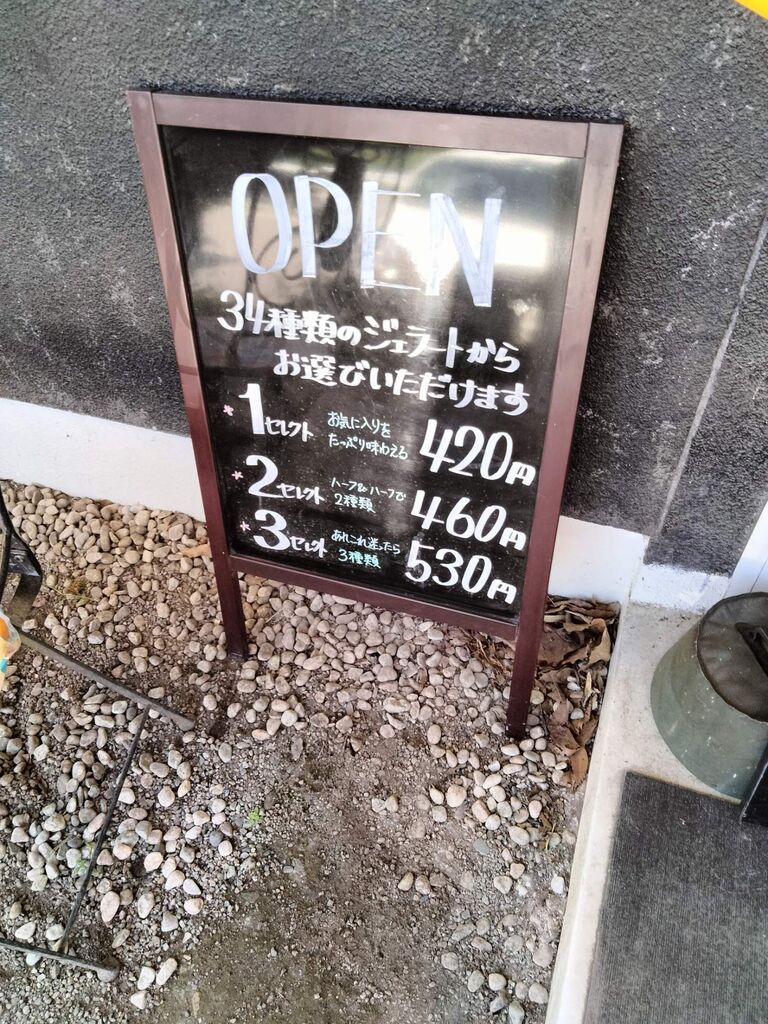 OPEN
34種類のジェラートから
お選びいただけます
*1セレクト お気に入りを たっぷり味わえる 420円
*2セレクト ハーフ&ハーフで 2種類 460円
*3セレクト あれこれ迷ったら 3種類 530円